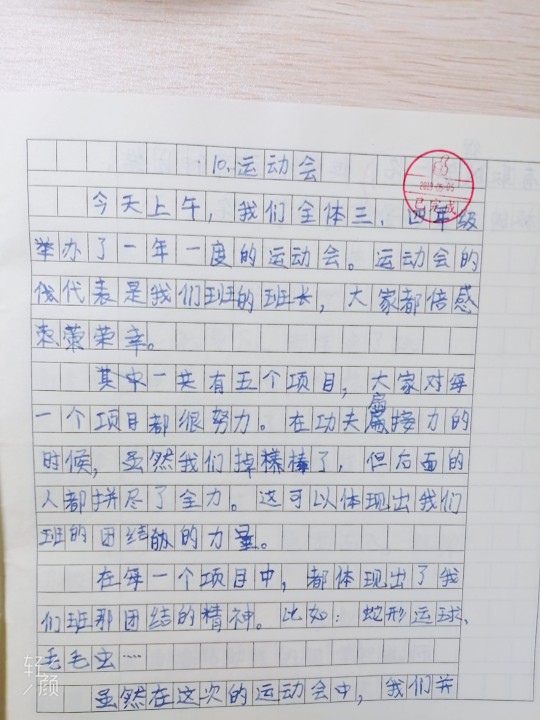 10.运动会
今天上午，我们全体三、四年级
举办了一年一度的运动会。运动会的
代表是我们班的班长，大家都倍感
荣幸。
其中一共有五个项目，大家对每
一个项目都很努力。在功夫扇接力的
时候，虽然我们掉棒了，但后面的
人都拼尽了全力。这可以体现出我们
班的团结的力量。
在每一个项目中，都体现出了我
们班那团结的精神。比如：蛇形运球、
毛毛虫……
虽然在这次的运动会中，我们并
已完成
轻颜